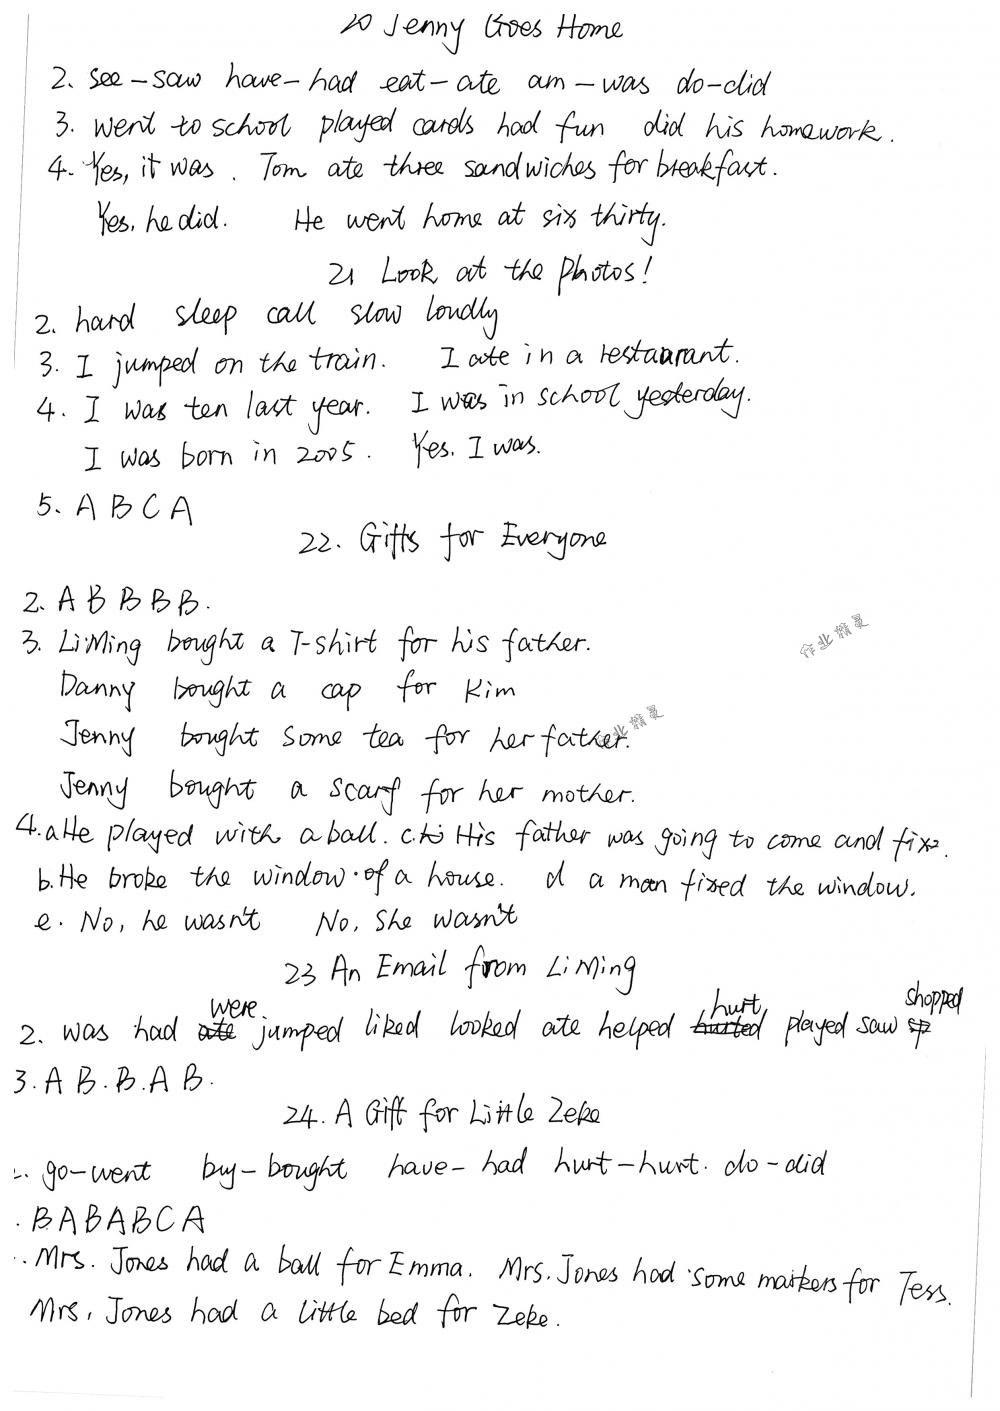 20 Jenny Goes Home
2. see-saw have-had eat-ate am-was do-did
3. went to school played cards had fun did his homework.
4. Yes, it was. Tom ate three sandwiches for breakfast.
Yes, he did. He went home at six thirty.
21 Look at the Photos!
2. hard sleep call slow loudly
3. I jumped on the train. I ate in a restaurant.
4. I was ten last year. I was in school yesterday.
I was born in 2005. Yes. I was.
5. A B C A
22. Gifts for Everyone
2. A B B B B.
3. LiMing bought a T-shirt for his father.
Danny bought a cap for Kim
Jenny bought some tea for her father.
作业精灵
作业精灵
Jenny bought a scarf for her mother.
4. a He played with a ball. c. His father was going to come and fix
b. He broke the window of a house. d a man fixed the window.
e. No, he wasn't No, she wasn't
23 An Email from LiMing
2. was had were jumped liked looked ate helped hurt played saw shopped
3. A B. B. A B.
24. A Gift for Little Zeke
go-went buy-bought have-had hurt-hurt. do-did
. B A B A B C A
Mrs. Jones had a ball for Emma. Mrs. Jones had some markers for Tess.
Mrs. Jones had a little bed for Zeke.